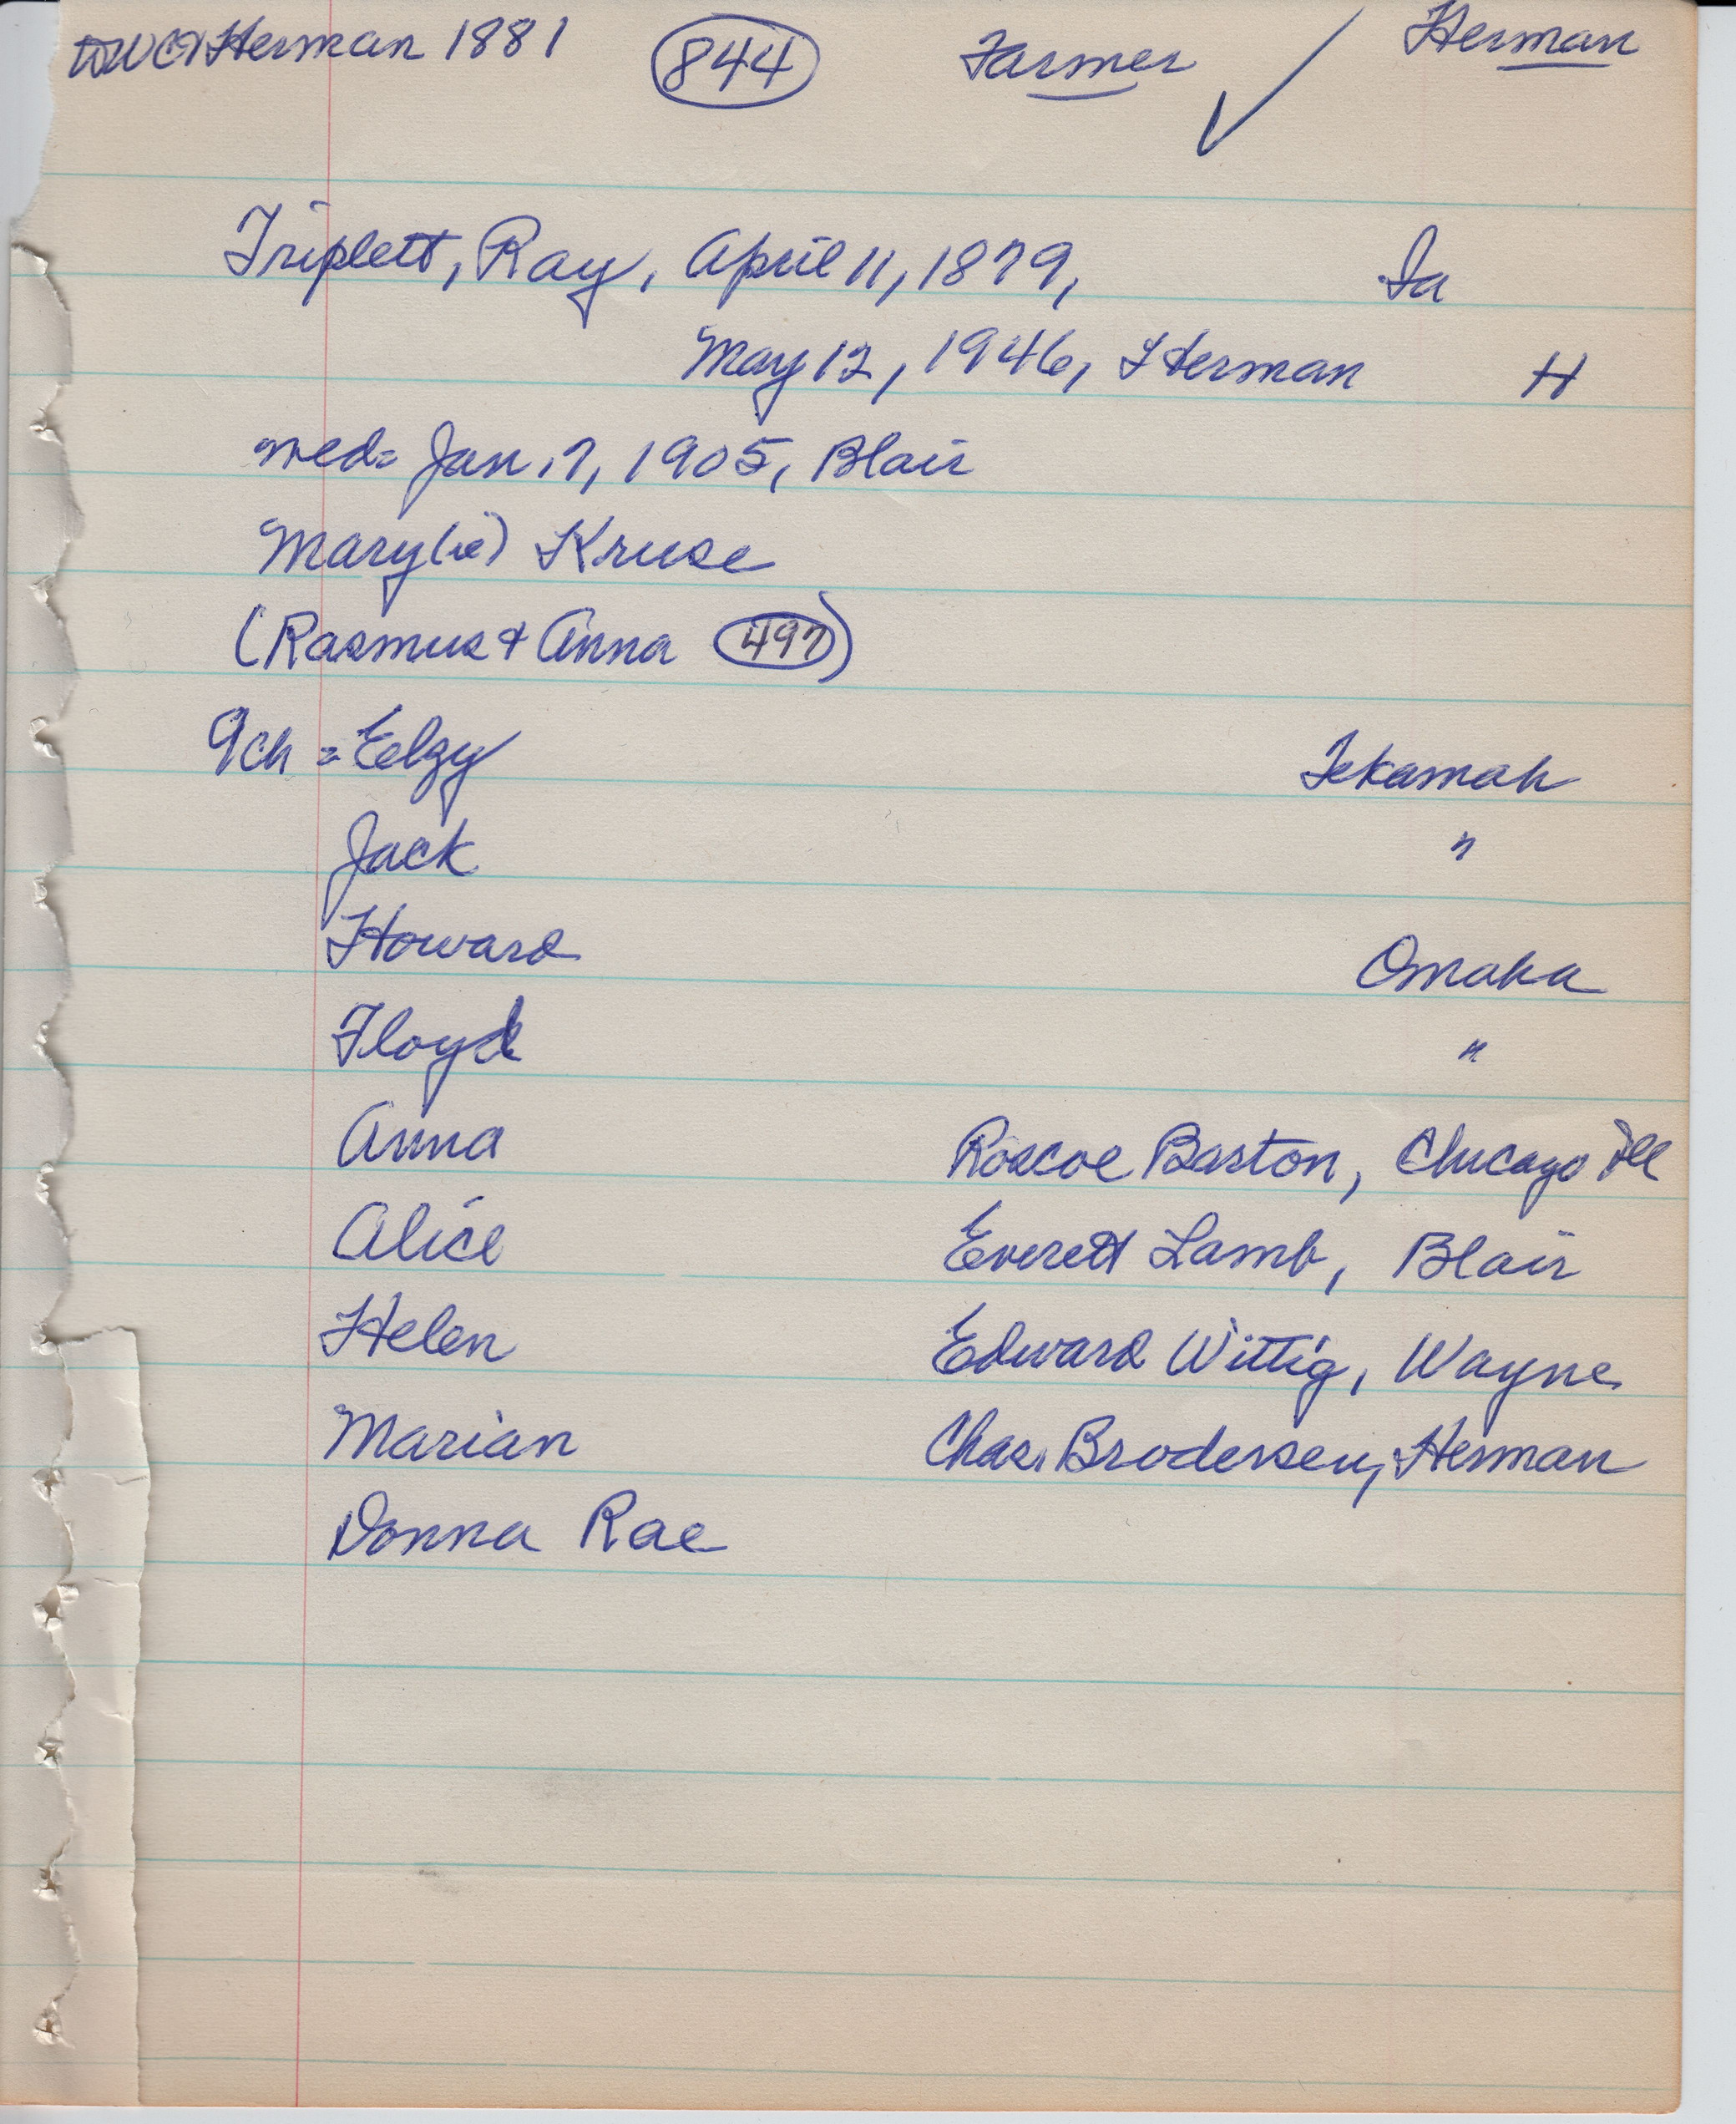 Herman 1881 844 Farmer ✓ Herman
Triplett, Ray, April 11, 1879, Ia
May 12, 1946, Herman H
med= Jan. 7, 1905, Blair
Mary(ie) Kruse
(Rasmus & Anna 497)
9ch = Eelzy Tekamah
Jack "
Howard Omaha
Floyd "
Anna Roscoe Barton, Chicago Ill
Alice Everett Lamb, Blair
Helen Edward Wittig, Wayne
Marian Chas. Brodersen, Herman
Donna Rae